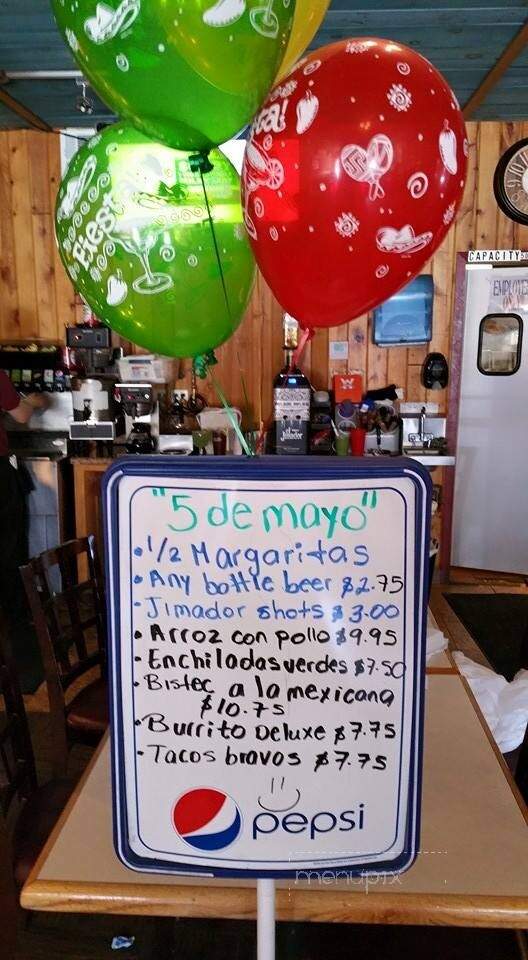 Fiesta!
ta!
CAPACITY
EMPLOYEE
Jimador
"5 de mayo"
• 1/2 Margaritas
• Any bottle beer $2.75
- Jimador shots $3.00
• Arroz con pollo $9.95
- Enchiladas verdes $7.50
- Bistec a la mexicana
$10.75
- Burrito Deluxe $7.75
- Tacos bravos $7.75
pepsi
menupix